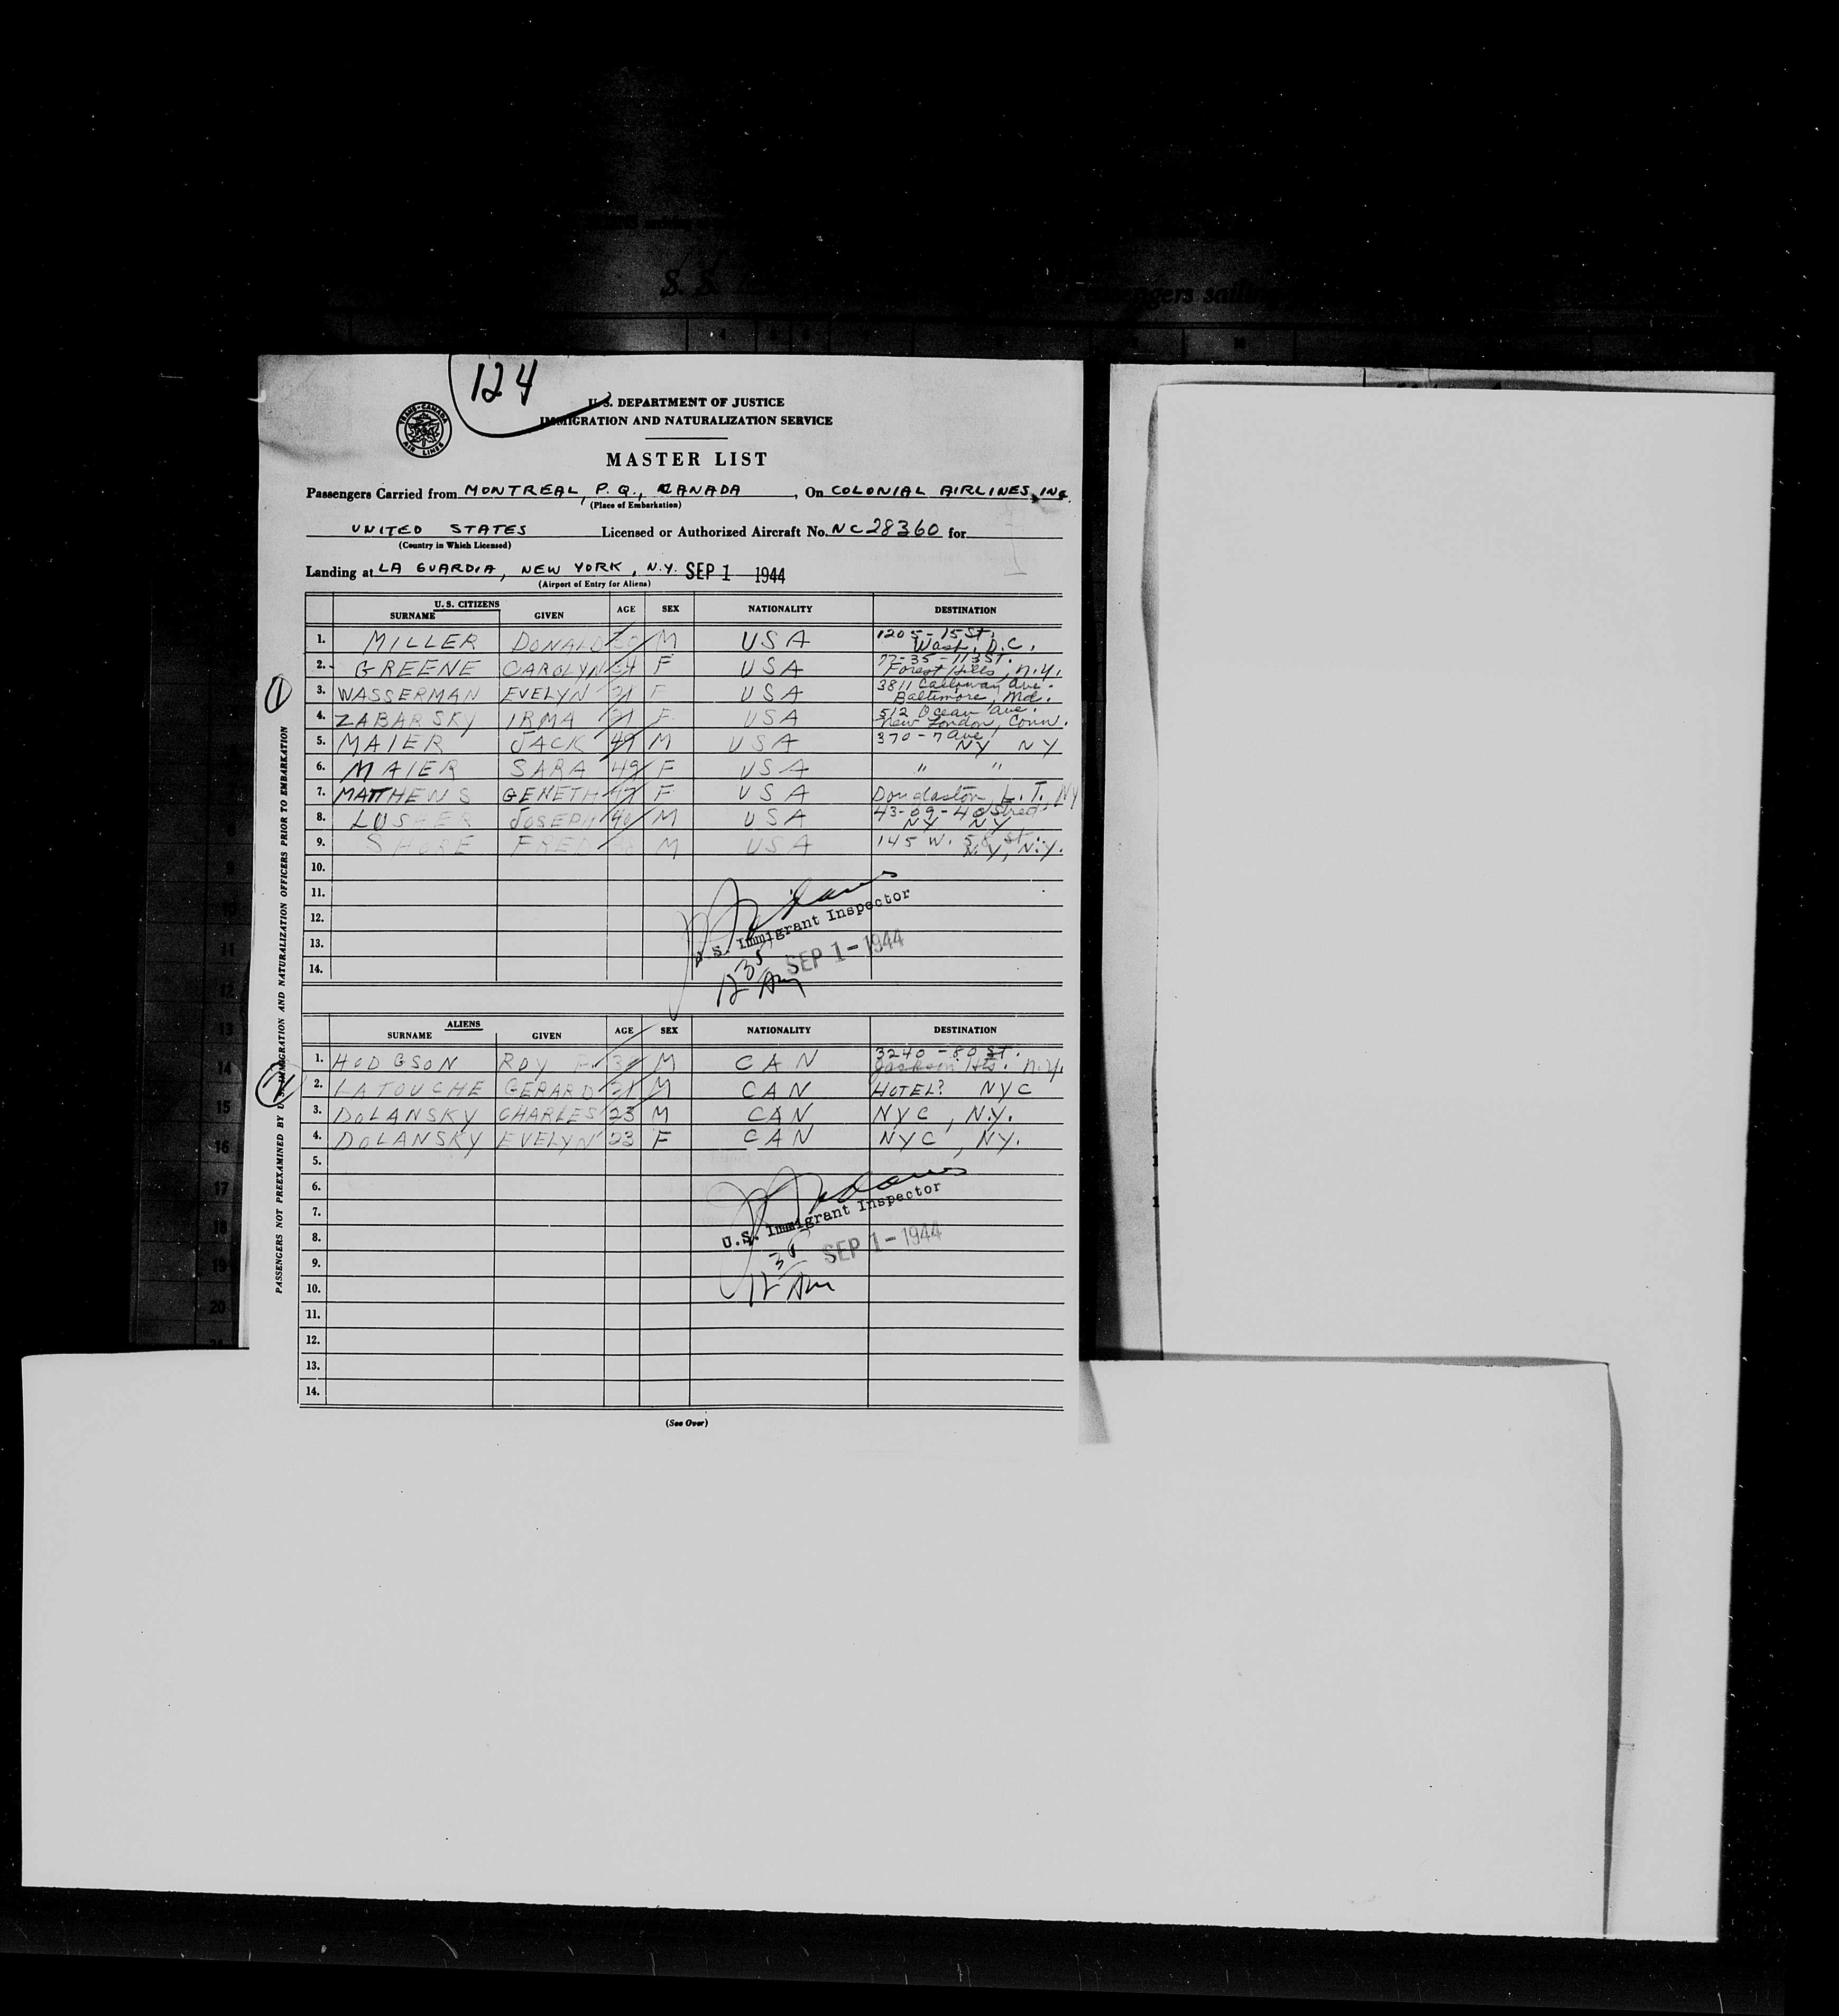 124
TRANS-CANADA AIR LINES
U.S. DEPARTMENT OF JUSTICE
IMMIGRATION AND NATURALIZATION SERVICE
MASTER LIST
Passengers Carried from MONTREAL, P.Q., CANADA, On COLONIAL AIRLINES, INC.
(Place of Embarkation)
UNITED STATES Licensed or Authorized Aircraft No. NC28360 for
(Country in Which Licensed)
Landing at LA GUARDIA, NEW YORK, N.Y. SEP 1 1944
(Airport of Entry for Aliens)
U. S. CITIZENS
SURNAME GIVEN AGE SEX NATIONALITY DESTINATION
1. MILLER DONALD M USA 1205-15 St.
Wash. D.C.
2. GREENE CAROLYN F USA 77-35-113 ST.
Forest Hills, N.Y.
3. WASSERMAN EVELYN 21 F USA 3811 Callaway Ave.
Baltimore, Md.
4. ZABARSKY IRMA 21 F USA 512 Ocean Ave.
New London, Conn.
5. MAIER JACK 49 M USA 370-7 Ave
NY NY
6. MAIER SARA 49 F USA " "
7. MATTHEWS GENETH F USA Douglaston, L.I., NY
8. LUSHER JOSEPH 40 M USA 43-09-40 Street
NY NY
9. SHORE FRED M USA 145 W. 58 St.
N.Y, N.Y.
10.
11.
12.
13.
14.
U.S. Immigrant Inspector
SEP 1-1944
12 35 Am
ALIENS
SURNAME GIVEN AGE SEX NATIONALITY DESTINATION
1. HODGSON ROY M CAN 3240-80 ST.
Jackson Hts. N.Y.
2. LATOUCHE GERARD 21 M CAN HOTEL? NYC
3. DOLANSKY CHARLES 23 M CAN NYC, N.Y.
4. DOLANSKY EVELYN 23 F CAN NYC, NY.
5.
6.
7.
8.
9.
10.
11.
12.
13.
14.
U.S. Immigrant Inspector
SEP 1-1944
12 35 Am
(See Over)
PASSENGERS NOT PREEXAMINED BY U. S. IMMIGRATION AND NATURALIZATION OFFICERS PRIOR TO EMBARKATION